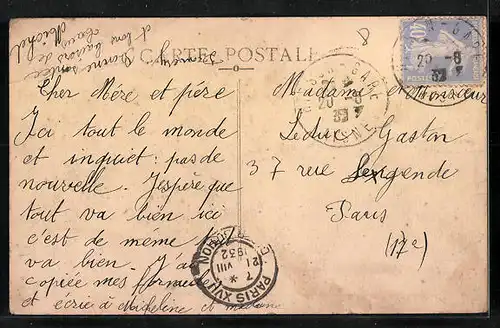 Bonne santée
et bons baisers de
Michel
CARTE POSTALE
8
Cher Mère et père
Ici tout le monde
et inquiet : pas de
nouvelle. J'espère que
tout va bien ici
c'est de même
va bien. J'ai
copiée mes
et écrie à Micheline et
Madame et Monsieur
Leduc Gaston
37 rue Legendre
Paris
(17e)
20 -8
32
AISNE
20 -8
32
POSTES
PARIS XVII
7 * VIII
21
1932